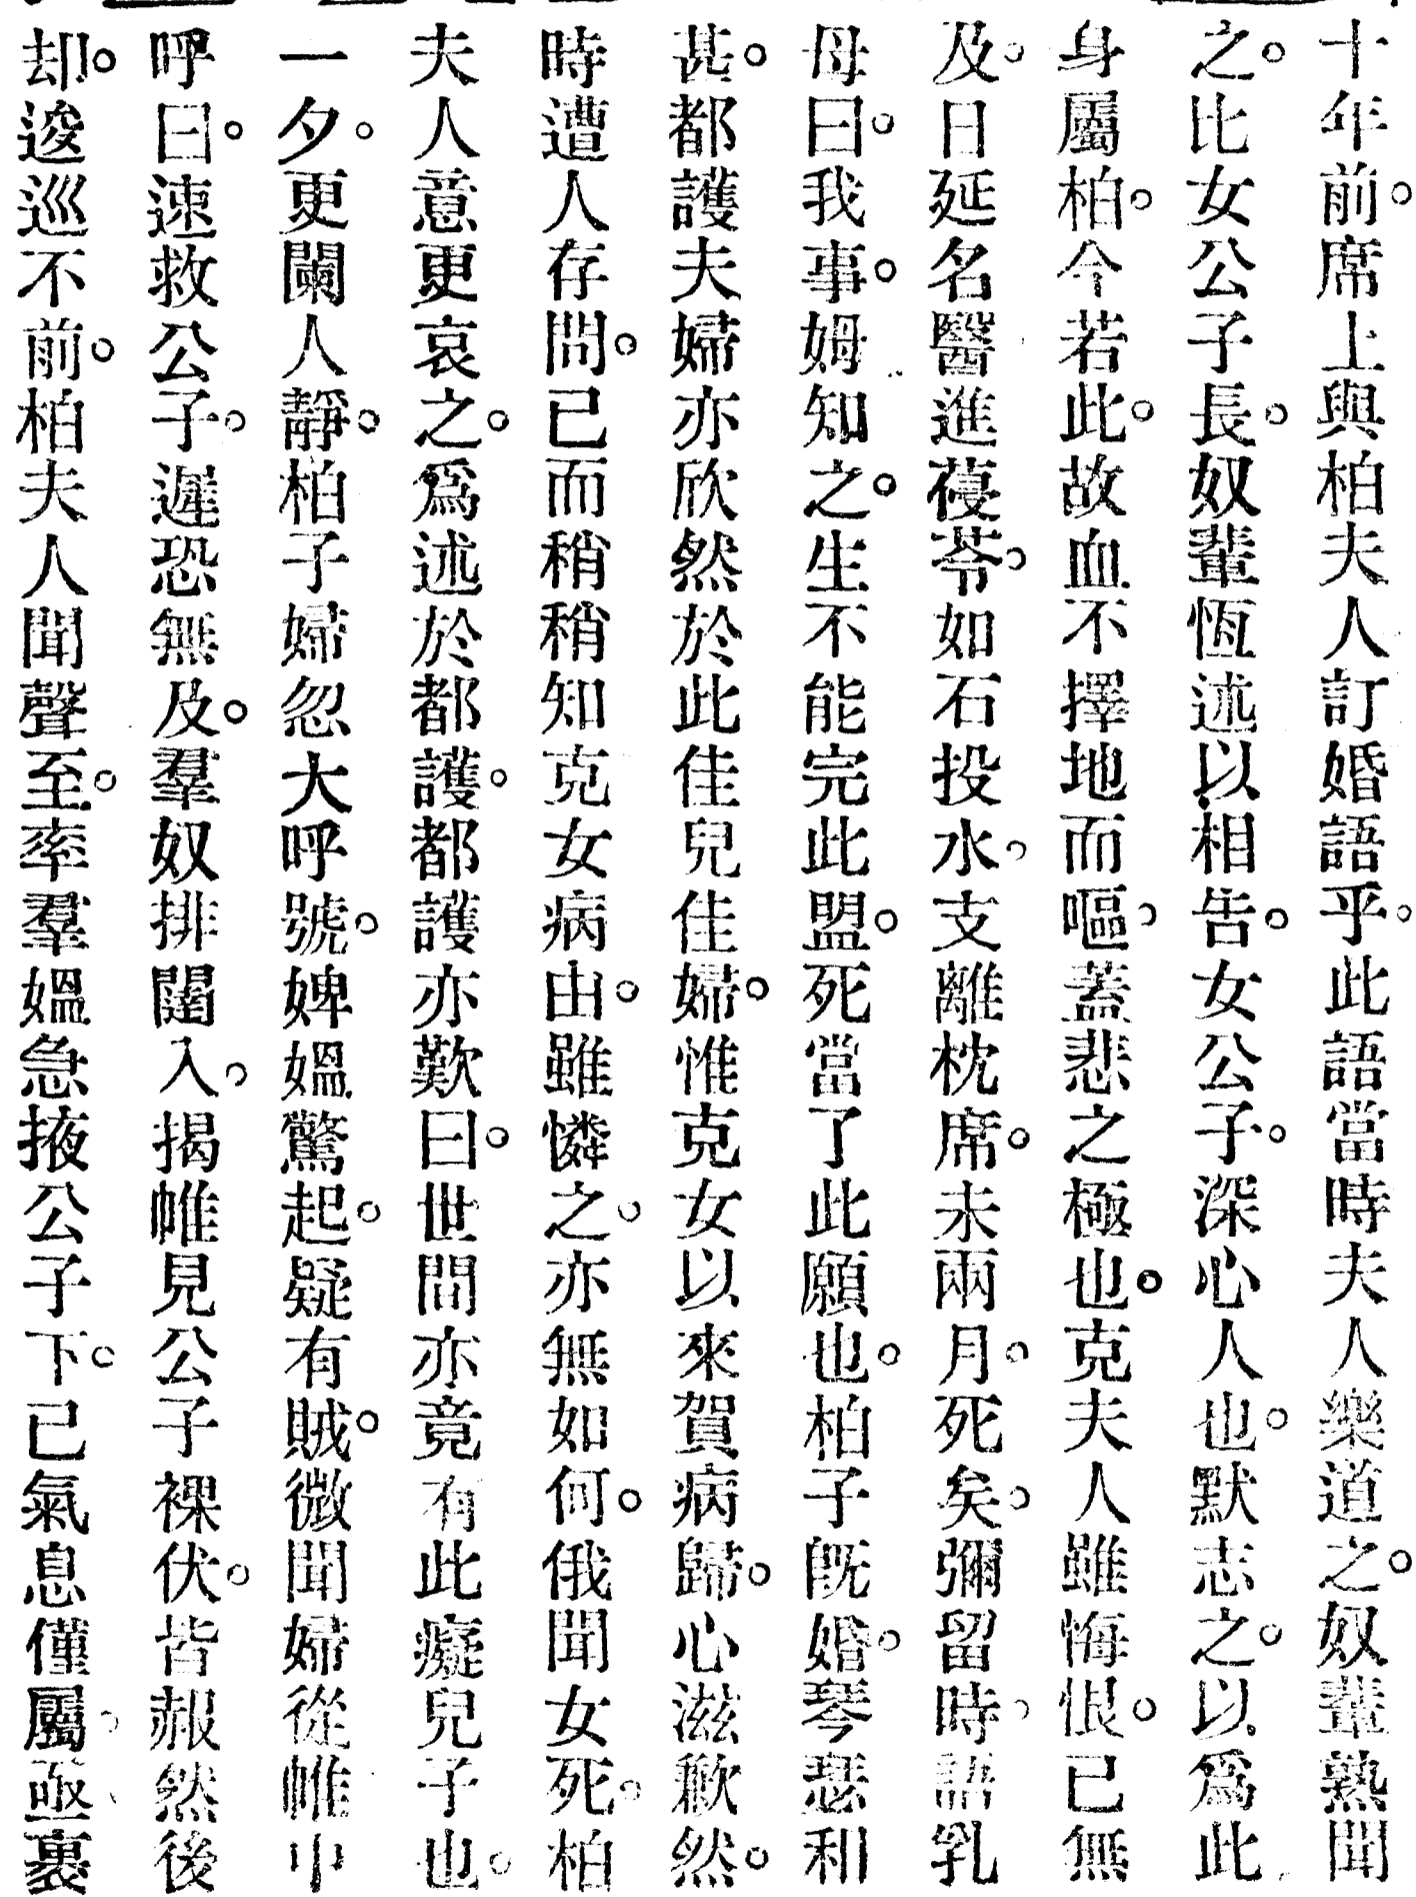 十年前。席上與柏夫人訂婚語乎。此語當時夫人樂道之。奴輩熟聞
之。比女公子長。奴輩恆述以相告。女公子。深心人也。默志之。以爲此
身屬柏。今若此。故血不擇地而嘔。蓋悲之極也。克夫人雖悔恨。已無
及。日延名醫進葠苓。如石投水。支離枕席。未兩月。死矣。彌留時。語乳
母曰。我事。姆知之。生不能完此盟。死當了此願也。柏子旣婚。琴瑟和
甚。都護夫婦亦欣然於此佳兒佳婦。惟克女以來賀病歸。心滋歉然。
時遭人存問。已而稍稍知克女病由。雖憐之。亦無如何。俄聞女死。柏
夫人意更哀之。爲述於都護。都護亦歎曰。世間亦竟有此癡兒子也。
一夕。更闌人靜。柏子婦忽大呼號。婢媼驚起。疑有賊。微聞婦從帷中
呼曰。速救公子。遲恐無及。羣奴排闥入。揭帷見公子裸伏。皆赧然後
却。逡巡不前。柏夫人聞聲至。率羣媼急掖公子下。已氣息僅屬。亟裹